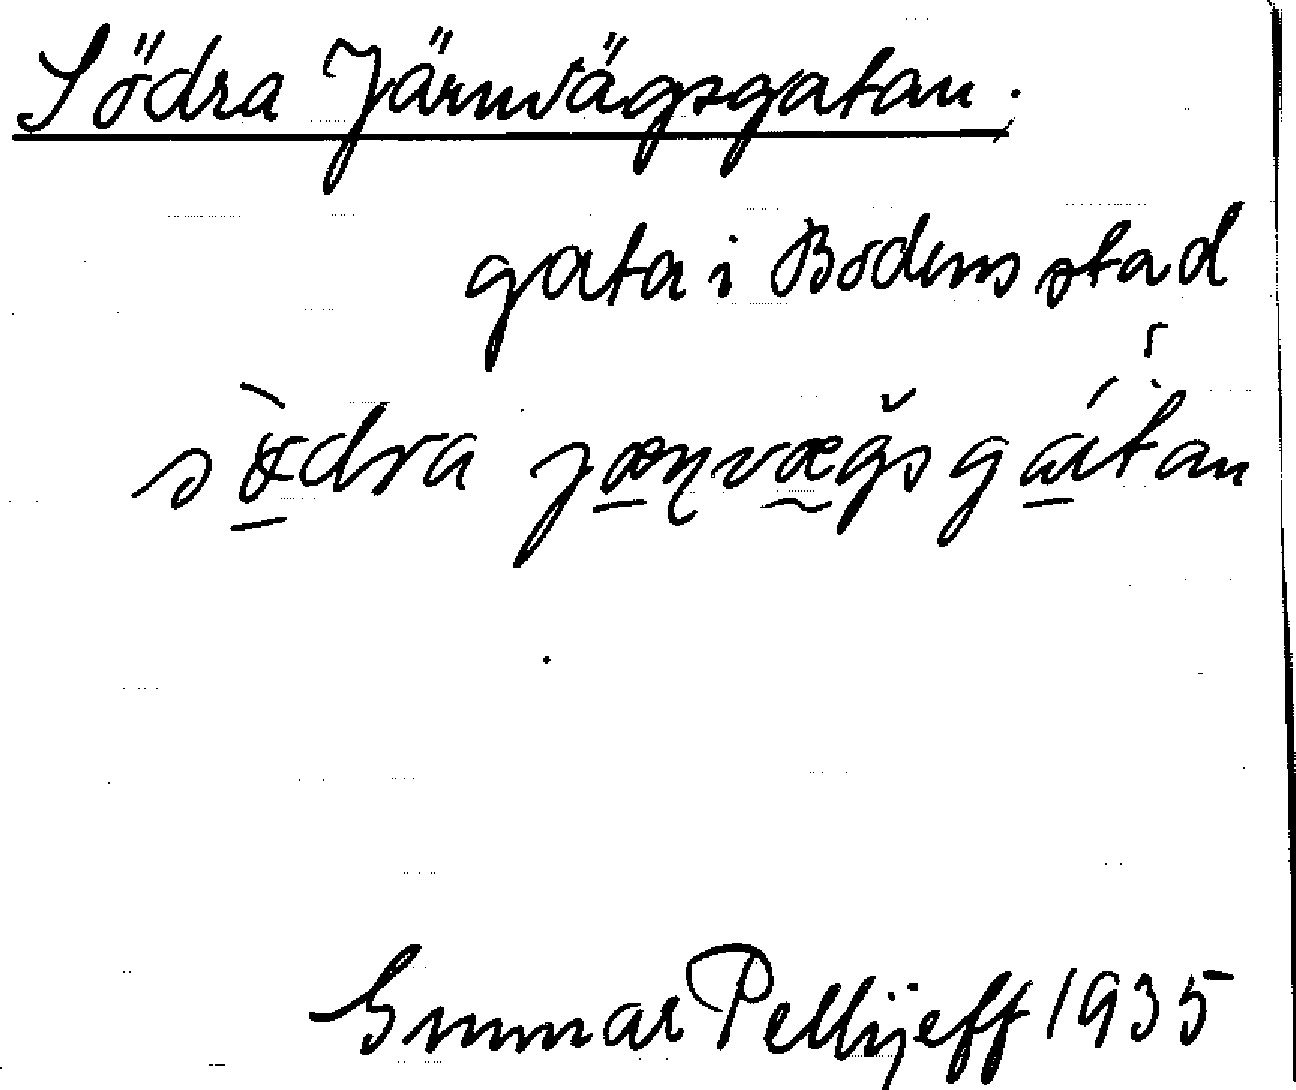 Södra Järnvägsgatan.
gata i Bodens stad
sö̀dra jæṇvæğsgátan
Gunnar Pellijeff 1935